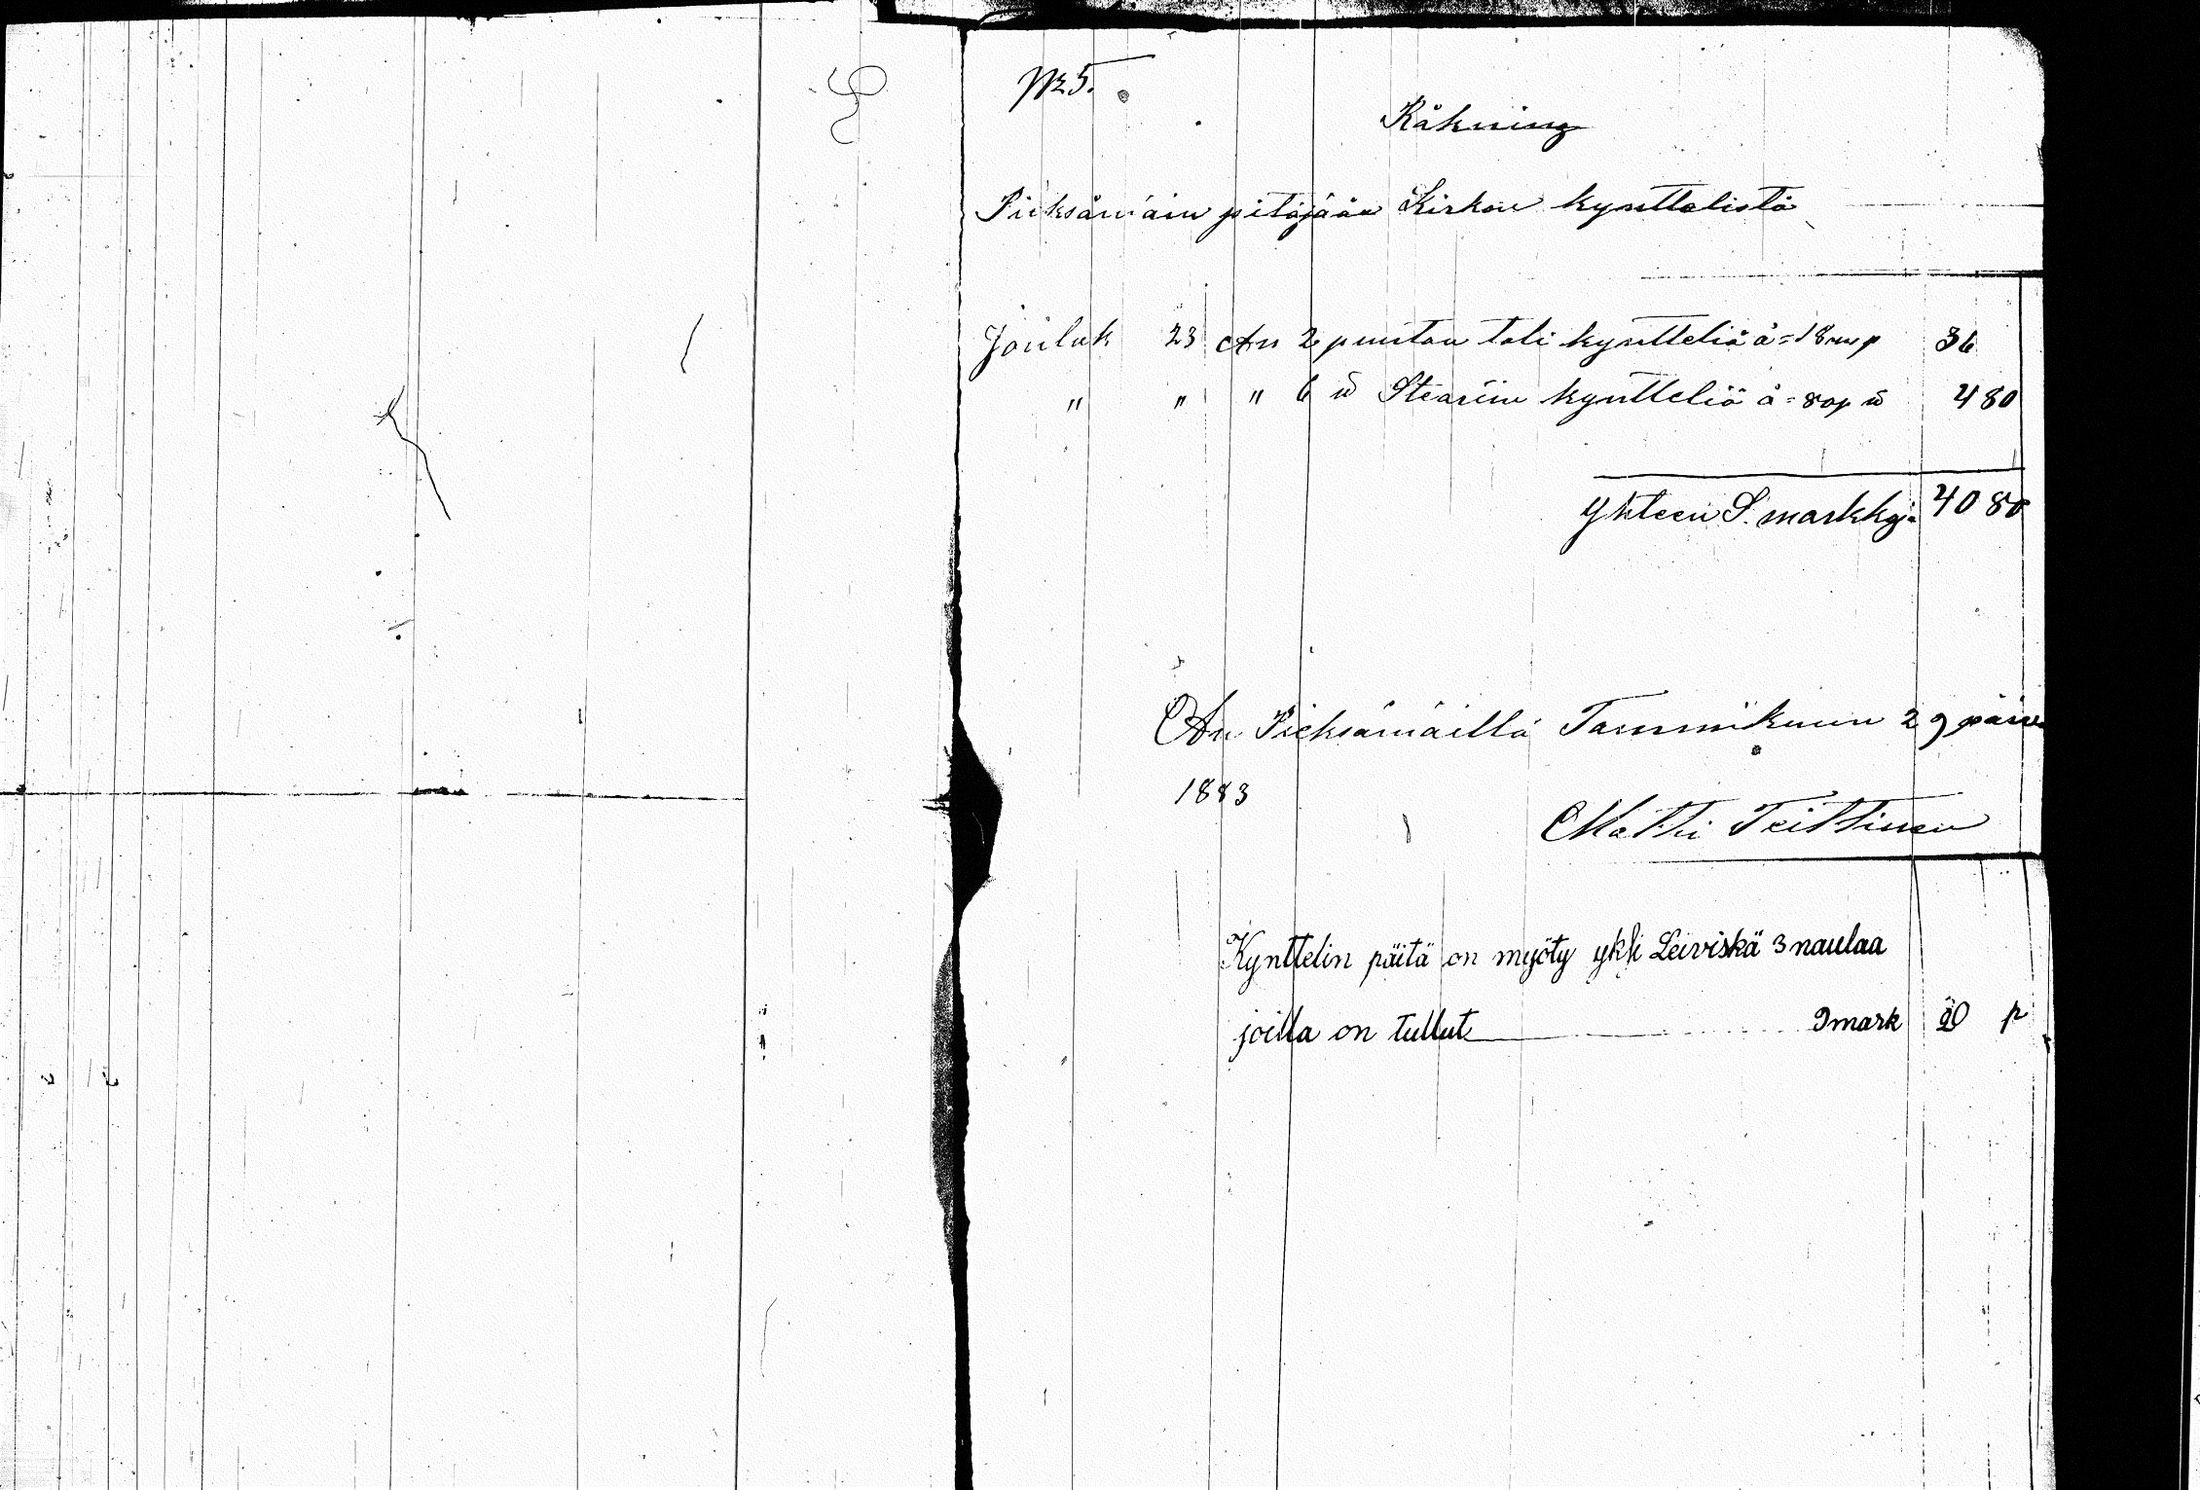 No 5.
Räkning
Pieksämäin pitäjään Kirkon kynttelistä
Jouluk 23 An 2 puntaa tali kyntteliä à = 18 mp 36
" " " 6 ℔ Steariin kyntteliä à = 80 p ℔ 4 80
Yhteen S. markkoja 40 80
An Pieksämäillä Tammikuun 29 päivä
1883
Matti Teittinen
Kynttelin päitä on myöty yksi Leiviskä 3 naulaa
joilla on tullut 9 mark 20 p